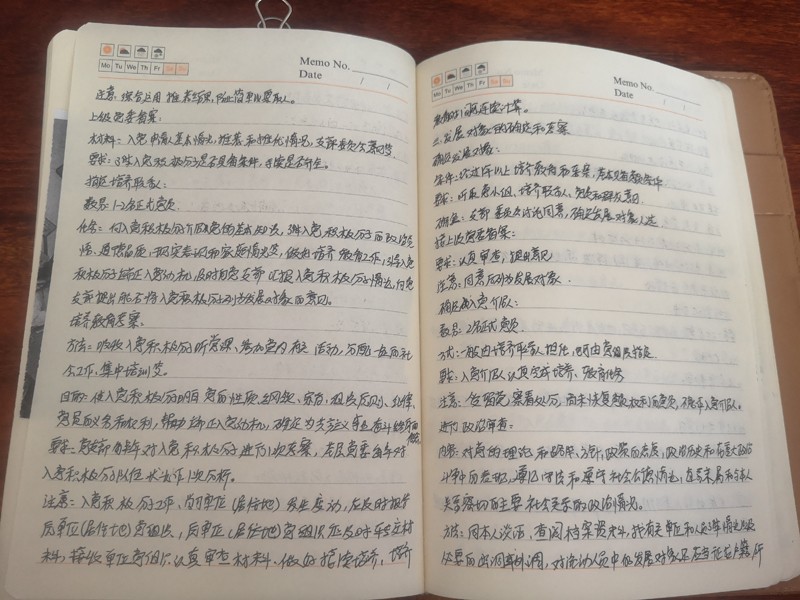 Mo Tu We Th Fr Sa Su
Memo No.
Date / /
注意：综合运用推荐结果，防止简单以票取人。
上级党委备案：
材料：入党申请人基本情况，推荐和推优情况，支部委员会意见等。
要求：入党积极分子是否具备条件，手续是否齐全。
指定培养联系人：
数量：1-2名正式党员
任务：向入党积极分子介绍党的基本知识，了解入党积极分子的政治觉
悟、道德品质、现实表现和家庭情况等，做好培养教育工作，引导入党
积极分子端正入党动机，及时向党支部汇报入党积极分子情况，向党
支部提出能否将入党积极分子列为发展对象的意见。
培养教育考察：
方法：吸收入党积极分子听党课、参加党内有关活动，分配一定的社
会工作，集中培训等。
目的：使入党积极分子明白党的性质、纲领、宗旨、组织原则、纪律，
党员的义务和权利，帮助端正入党动机，确定为共产主义事业奋斗终身的
要求：党支部每半年对入党积极分子进行1次考察，基层党委每年对
入党积极分子队伍状况作1次分析。
注意：入党积极分子工作、学习单位（居住地）发生变动，应及时报告
原单位（居住地）党组织，原单位（居住地）党组织应及时转交材
料，接收单位党组织认真审查材料，做好接续培养，培养
Mo Tu We Th Fr Sa Su
Memo No.
Date / /
教育时间可连续计算。
三、发展对象的确定和考察
确定发展对象：
条件：经过1年以上培养教育和考察，基本具备党员条件
要求：听取党小组、培养联系人、党员和群众意见
确定：支部委员会讨论同意，确定发展对象人选
报上级党委备案：
要求：认真审查，提出意见
注意：同意后列为发展对象。
确定入党介绍人：
数量：2名正式党员
方式：一般由培养联系人担任，也可由党组织指定
要求：入党介绍人认真完成培养、教育任务
注意：受留党察看处分，尚未恢复党员权利的党员，不能作入党介绍人。
进行政治审查：
内容：对党的理论和路线、方针、政策的态度，政治历史和在重大政治
斗争中的表现，遵纪守法和遵守社会公德情况，直系亲属和与本人
关系密切的主要社会关系的政治情况。
方法：同本人谈话，查阅档案资料，找有关单位和人员了解情况以及
必要的函调或外调，对流动人员中的发展对象还应当征求户籍所